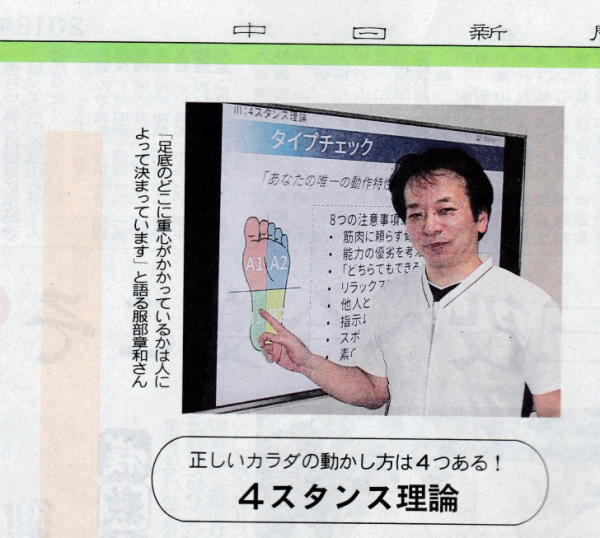 中日新
Ⅲ:4スタンス理論
タイプチェック
「あなたの唯一の動作特性
8つの注意事項
• 筋肉に頼らず
• 能力の優劣を考
• 「どちらでもできる
• リラックス
• 他人と
• 指示
• スポ
• 素
A1 A2
「足底のどこに重心がかかっているかは人に
よって決まっています」と語る服部章和さん
正しいカラダの動かし方は4つある!
4スタンス理論